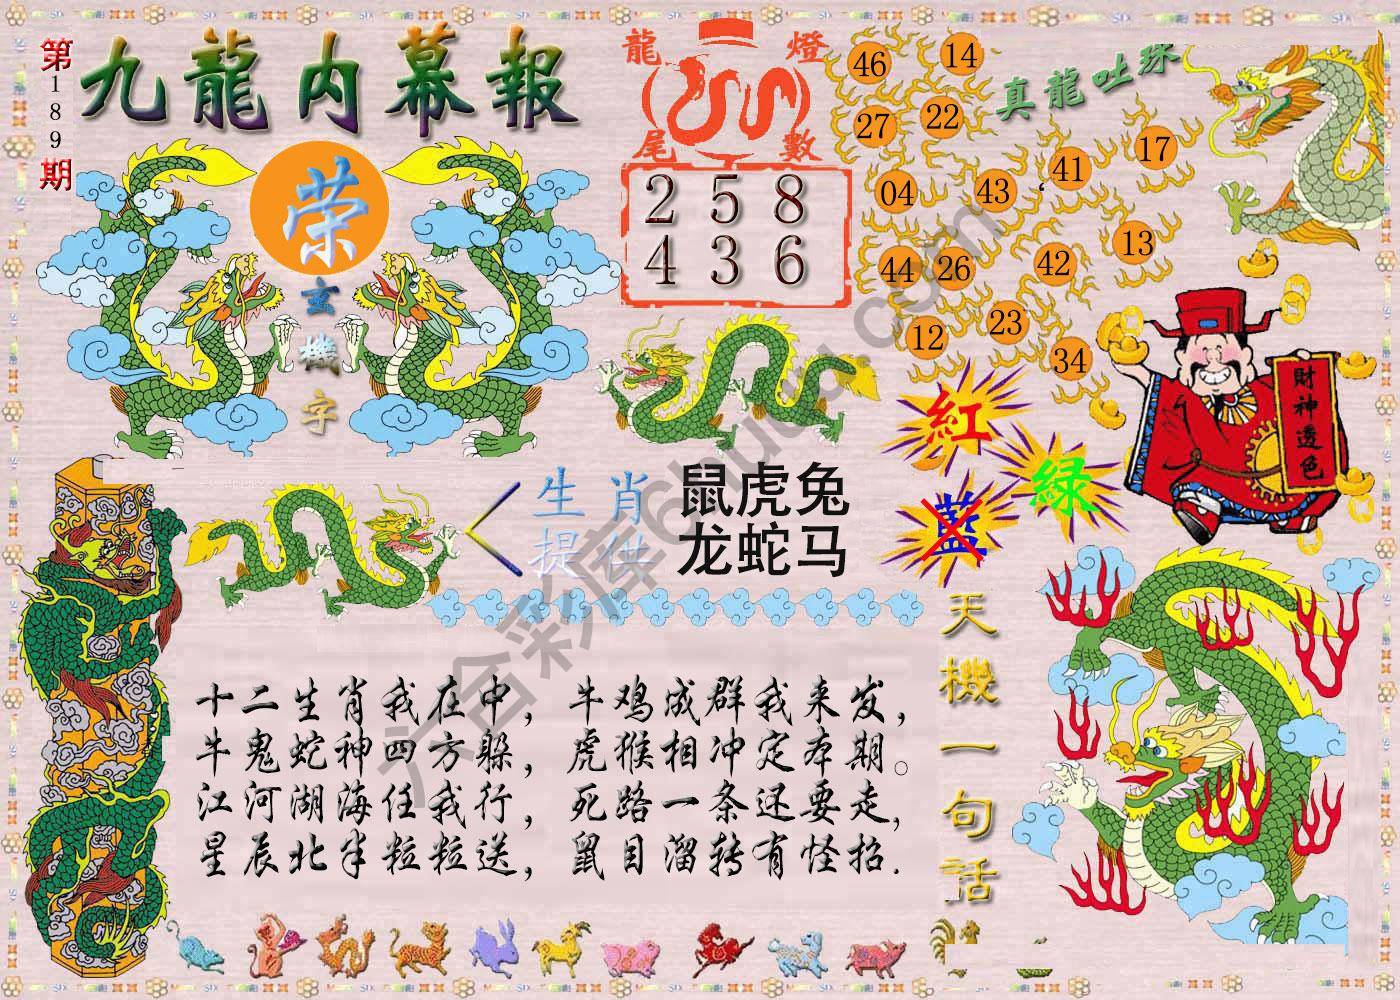 第189期
九龍内幕報
荣
玄機字
龍燈
尾數
2 5 8
4 3 6
真龍吐珠
46
14
27
22
41
17
04
43
13
44
26
42
12
23
34
財神透色
紅
绿
藍
生肖
提供
鼠虎兔
龙蛇马
天機一句話
十二生肖我在中，牛鸡成群我来发，
牛鬼蛇神四方躲，虎猴相冲定本期。
江河湖海任我行，死路一条还要走，
星辰北半粒粒送，鼠目溜转有怪招.
六合彩库6huck.com